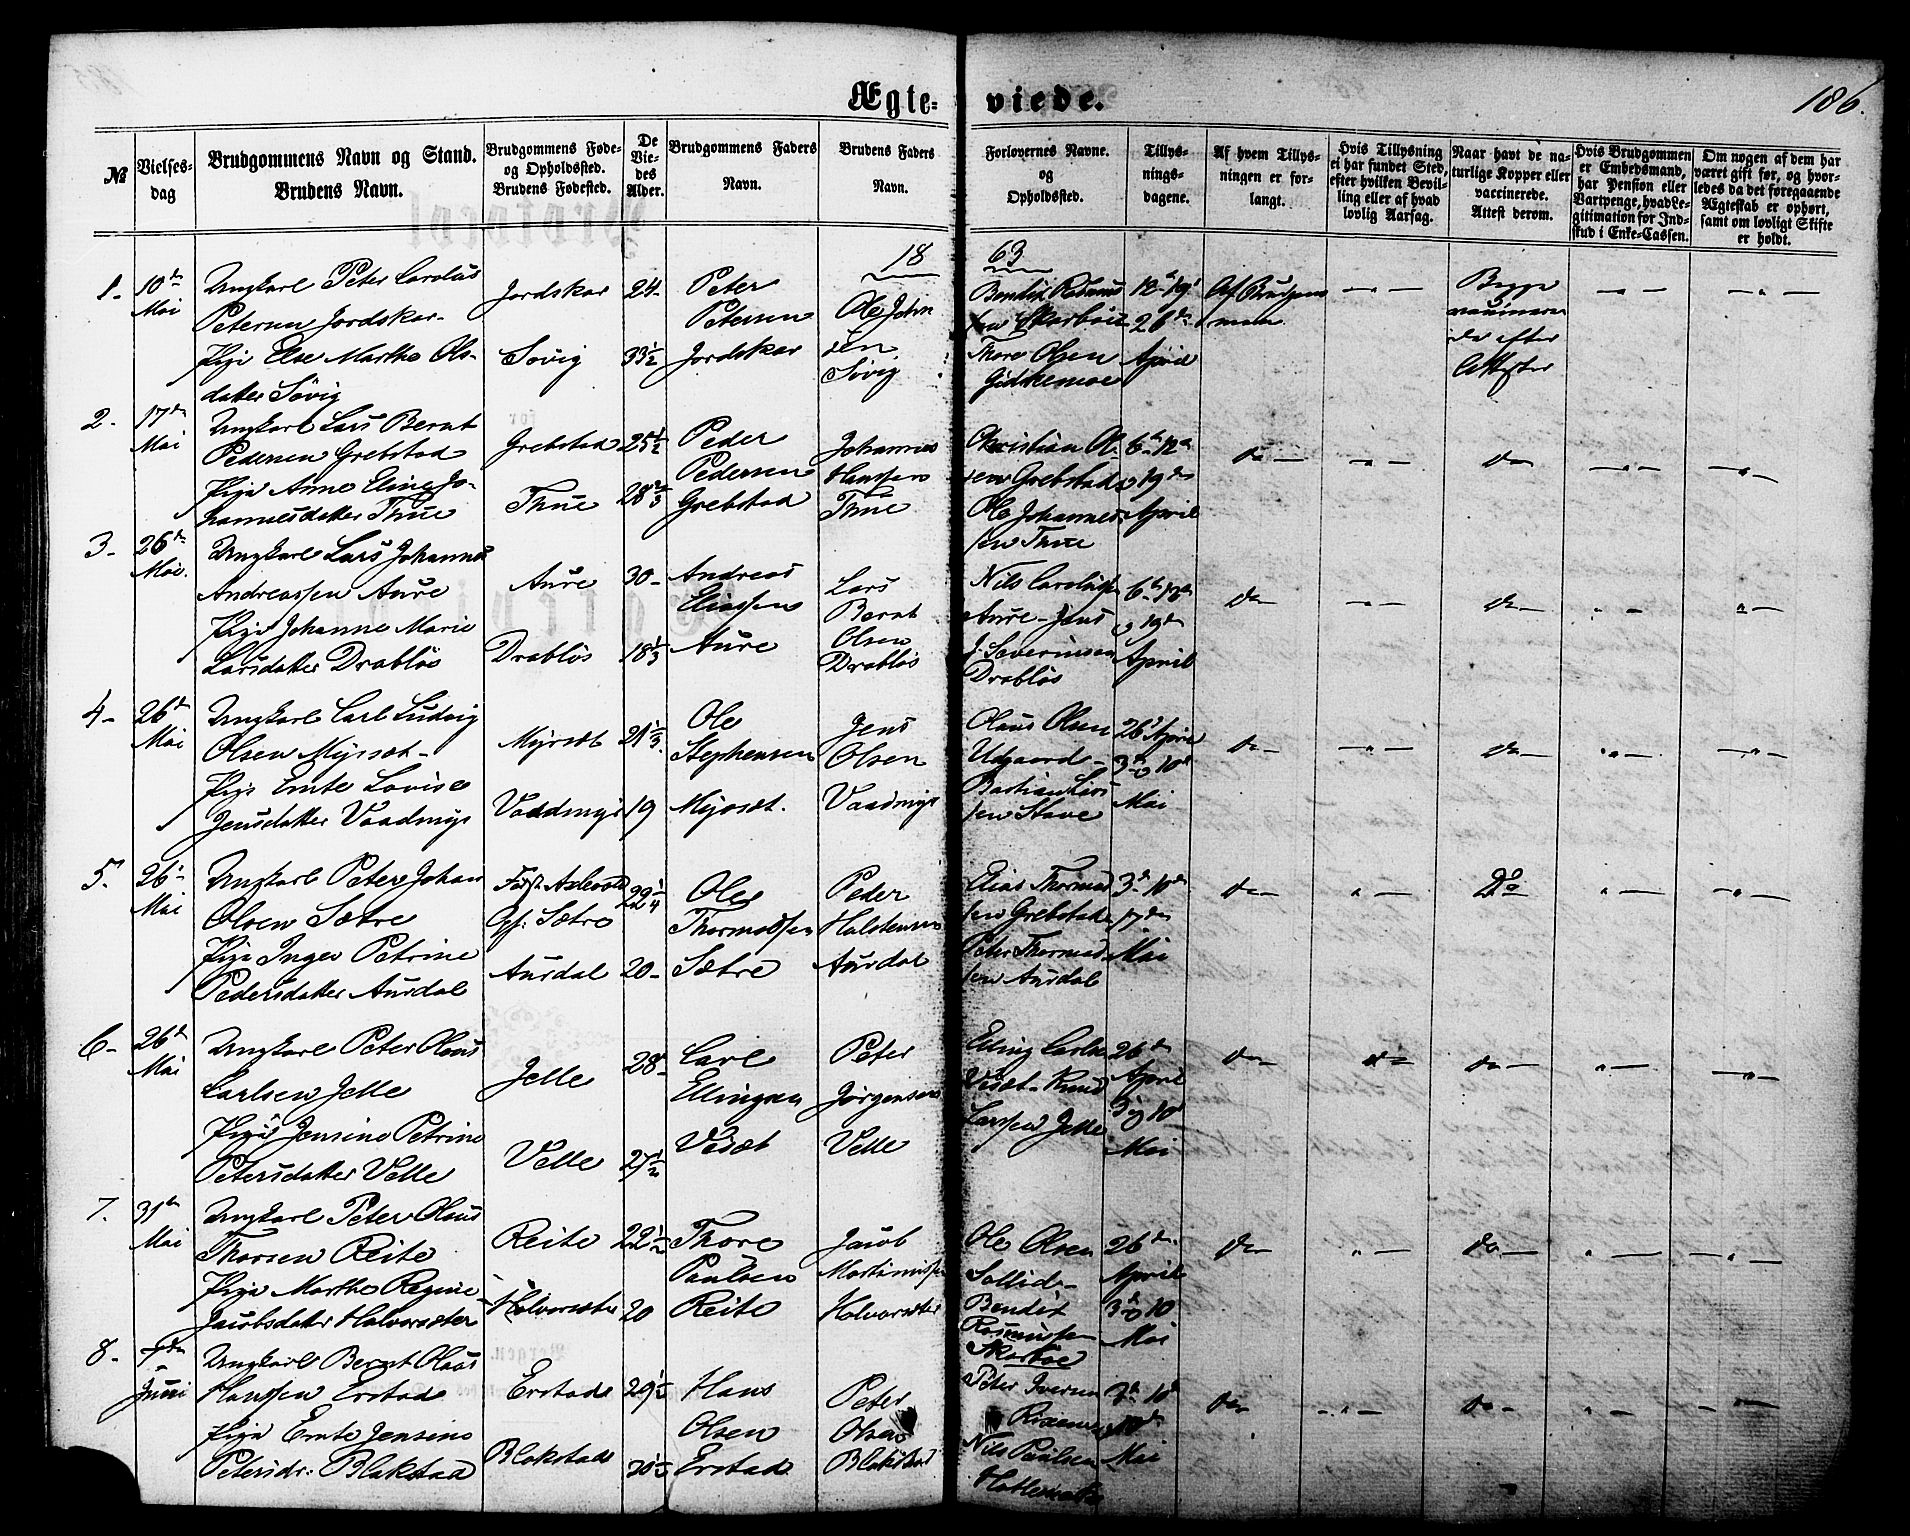 Ægte- viede.
186.
№
Vielses-
dag
Brudgommens Navn og Stand.
Brudens Navn.
Brudgommens Føde-
og Opholdssted.
Brudens Fødested.
De
Vie-
des
Alder.
Brudgommens Faders
Navn.
Brudens Faders
Navn.
Forlovernes Navne.
og
Opholdssted.
Tillys-
nings-
dagene.
Af hvem Tillys-
ningen er for-
langt.
Hvis Tillysning
ei har fundet Sted,
efter hvilken Bevil-
ling eller af hvad
lovlig Aarsag.
Naar havt de na-
turlige Kopper eller
vaccinerede.
Attest derom.
Hvis Brudgommen
er Embedsmand,
har Pension eller
Vartpenge, hvad Le-
gitimation for Ind-
skud i Enke-Cassen.
Om nogen af dem har
været gift før, og hvor-
ledes da det foregaaende
Ægteskab er ophørt,
samt om lovligt Skifte
er holdt.
18 63
1-
10de
Mai
Ungkarl Peter Carolus
Petersen Jordskar-
Pige Else Marthe Ols-
datter Søvig
Jordskar
Søvig
24-
33½
Peter
Petersen
Jordskar
Ole John
sen
Søvig
Bendix Rasmus
sen Skarbøe
Thore Olsen
Gidskemoe
12-19
26de
April
Af Brudgom
men
Begge
vaccinere
de efter
Attester
2.
17de
Mai
Ungkarl Lars Bernt
Pedersen Grebstad
Pige Anne Eline Jo-
hannesdatter Thue
Grebstad
Thue
25½
28⅔
Peder
Pedersen
Grebstad
Johannes
Hanssen
Thue
Christian Ol-
sen Grebstad
Ole Johannes-
sen Thue
6-12
19de
April
do
do
3-
26de
Mai.
Ungkarl Lars Johannes
Andreassen Aure
Pige Johanne Marie
Larsdatter Drabløs
Aure
Drabløs
30-
18⅓
Andreas
Eliassen
Aure
Lars
Bernt
Olsen
Drabløs
Nils Carolussen
Aure - Jens
J. Severinsen
Drabløs
6-12
19de
April
do
do
4-
26de
Mai
Ungkarl Carl Ludvig
Olsen Myrset-
Pige Ente Lovise
Jensdatter Vaadmyr
Myrset
Vaadmyr
21⅓
19
Ole
Stephensen
Myrset.
Jens
Olsen
Vaadmyr
Olaus Olsen
Udgaard-
Bastian Lars
sen Stave
26 April
3 og 10
Mai
do
do
5.
26
Mai
Ungkarl Peter Johan
Olsen Sætre
Pige Inger Petrine
Pedersdatter Aursdal
Sætre
Aursdal
22¼
20-
Ole
Thormodsen
Sætre
Peder
Halstensen
Aursdal
Elias Thormod
sen Grebstad
Peter Thormod
sen Aursdal
3-10
17de
Mai
do
Do
6-
26de
Mai
Ungkarl Peter Olaus
Carlsen Jelle
Pige Jensine Petrine
Petersdatter Velle
Jelle
Velle
28-
27½
Carl
Ellingsen
Vesæt
Peter
Jørgensen
Velle
Elling Carlsen
Vesæt- Knud
Larssen Jelle
26de
April
3 og 10
Mai
do
do
do
7.
31te
Mai
Ungkarl Peter Olaus
Thorsen Reite
Pige Marthe Regine
Jacobsdatter Halvorsæter
Reite
Halvorsæter
22½
20
Thore
Paulsen
Reite
Jacob
Martinussen
Halvorsæter
Ole Olsen
Sollid-
Bendix
Rasmussen
Skarbøe
26de
April
3 og 10
Mai
do
do
8-
Juni
Ungkarl Bernt Olaus
Hanssen Erstad
Pige Ente Jensine
Petersdr: Blakstad
Erstad
Blakstad
Hans
Olsen
Erstad
Peter
Olsen
Blakstad
Peter Iversen
Nils Paulsen
3 10
Mai
do
do